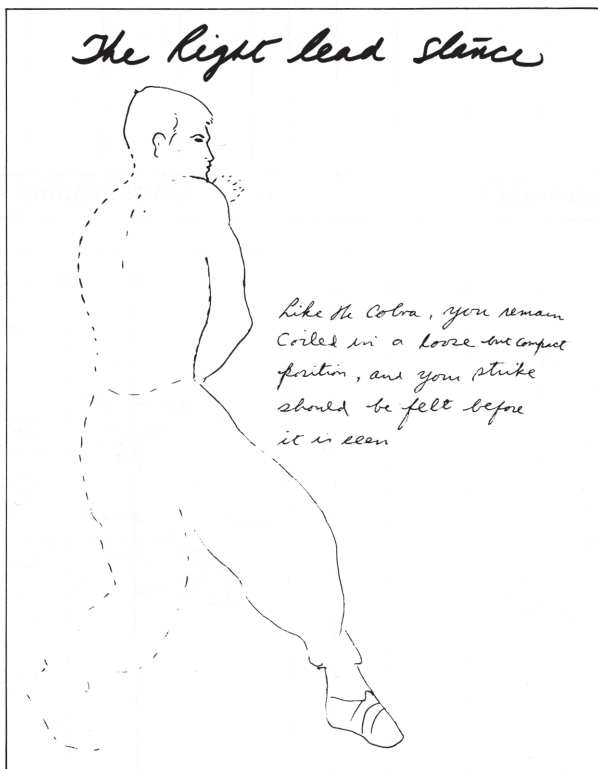 The Right lead stance
Like the Cobra, you remain
Coiled in a loose but compact
position, and your strike
should be felt before
it is seen